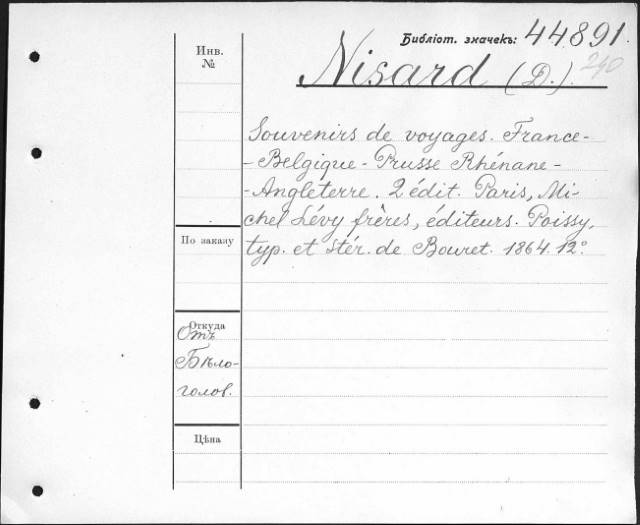 Библіот. значекъ: 44891.
240
Инв.
№
Nisard (D.).
Souvenirs de voyages. France-
-Belgique-Prusse Rhénane-
-Angleterre. 2 édit. Paris, Mi-
chel Lévy frères, éditeurs. Poissy,
typ. et stér. de Bouret. 1864. 12°
По заказу
Откуда
Отъ
Бѣло-
голов.
Цѣна